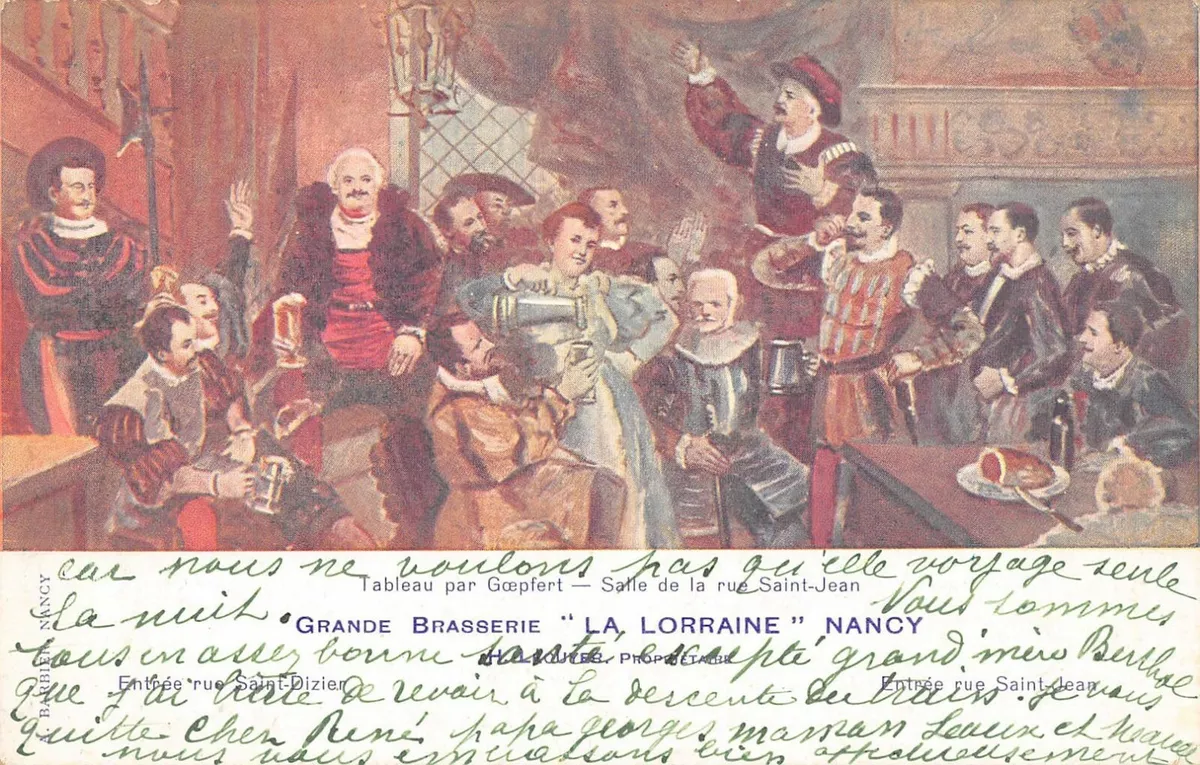 car nous ne voulons pas qu'elle voyage seule
Tableau par Gœpfert — Salle de la rue Saint-Jean
la nuit. Vous sommes
GRANDE BRASSERIE "LA LORRAINE" NANCY
tous en assez bonne santé excepté grand mère Berthe
PROPRIÉTAIRE
Entrée rue Saint-Dizier
Entrée rue Saint-Jean
que j'ai hâte de revoir à la descente du train. Je vous
quitte cher René papa georges maman et
nous vous embrassons bien affectueusement
BARBIER, NANCY